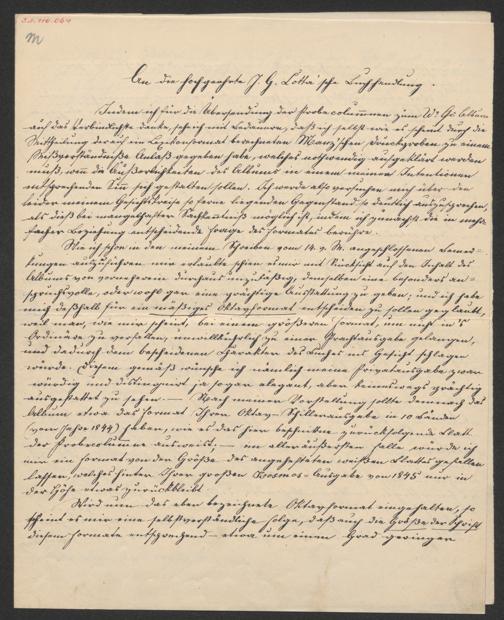 An die hochgeehrte J. G. Cotta'sche Buchhandlung.
Indem ich für die Übersendung der Probecolumnen zum W. Gr. Album
auf das Verbindlichste danke, sehe ich mit Bedauern, daß ich selbst wie es scheint durch die
Mittheilung der auf ein Lexikonformat berechneten Manz'schen Druckproben zu einem
Mißverständniße Anlaß gegeben habe, welches nothwendig aufgeklärt werden
muß, wenn die Äußerlichkeiten des Albums in einem meinen Intentionen
entsprechenden Sinn sich gestalten sollen. Ich werde also versuchen mich über den
leider meinem Gesichtskreise so ferne liegenden Gegenstand so deutlich auszusprechen,
als dieß bei mangelhafter Sachkenntniß möglich ist, indem ich zunächst die in mehr-
facher Beziehung entscheidende Frage des Formates berühre.
Wie ich schon in den meinem Schreiben vom 14. v. M. angeschlossenen Bemer-
kungen anzuführen mir erlaubte schien es mir mit Rücksicht auf den Inhalt des
Albums von vorneherein durchaus unzuläßig, demselben eine besonders an-
spruchsvolle, oder wohl gar eine prächtige Ausstattung zu geben; und ich habe
mich deßhalb für ein mäßiges Oktavformat entscheiden zu sollen geglaubt,
weil man, wie mir scheint, bei einem größeren Format, um nicht in's
Ordinäre zu verfallen, unwillkührlich zu einer Prachtausgabe gelangen,
und dadurch dem bescheidenen Charakter des Buches ins Gesicht schlagen
würde. Diesem gemäß wünsche ich nämlich meine Privatausgabe zwar
würdig und distinguirt ja sogar elegant, aber keineswegs prächtig
ausgestattet zu sehen. — Nach meiner Vorstellung sollte demnach das
Album etwa das Format Ihrer Oktav-Schillerausgabe in 10 Bänden
(vom Jahre 1844) haben, wie es das hier beschnitten zurückfolgende Blatt
der Probecolumne ausweist, — im alleräußersten Falle würde ich
mir ein Format von der Größe des angehefteten weißen Blattes gefallen
lassen, welches hinter Ihrer großen Kosmos-Ausgabe von 1845 nur in
der Höhe etwas zurückbleibt.
Wird nun das eben bezeichnete Oktavformat eingehalten, so
scheint es mir eine selbstverständliche Folge, daß auch die Größe der Schrift
diesem Formate entsprechend — etwa um einen Grad geringer